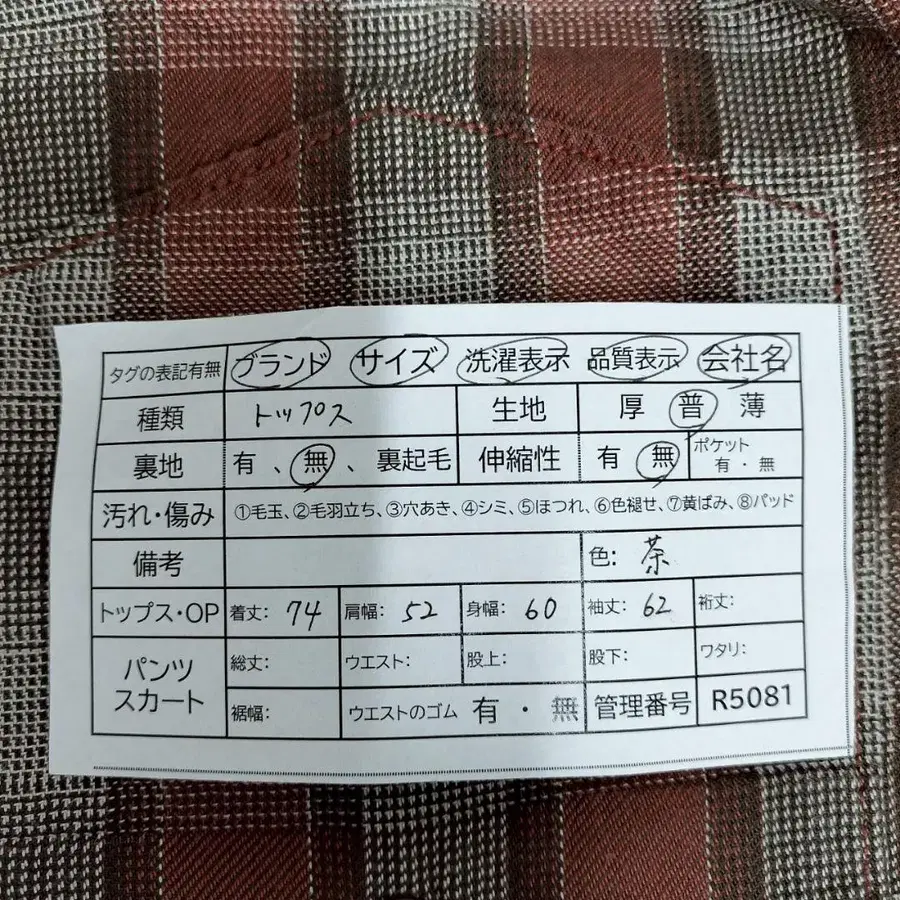 タグの表記有無 ブランド サイズ 洗濯表示 品質表示 会社名
種類 トップス 生地 厚 普 薄
裏地 有、無、裏起毛 伸縮性 有 無 ポケット 有・無
汚れ・傷み ①毛玉、②毛羽立ち、③穴あき、④シミ、⑤ほつれ、⑥色褪せ、⑦黄ばみ、⑧パッド
備考 色: 茶
トップス・OP 着丈: 74 肩幅: 52 身幅: 60 袖丈: 62 裄丈:
パンツ スカート 総丈: ウエスト: 股上: 股下: ワタリ:
裾幅: ウエストのゴム 有・無 管理番号 R5081